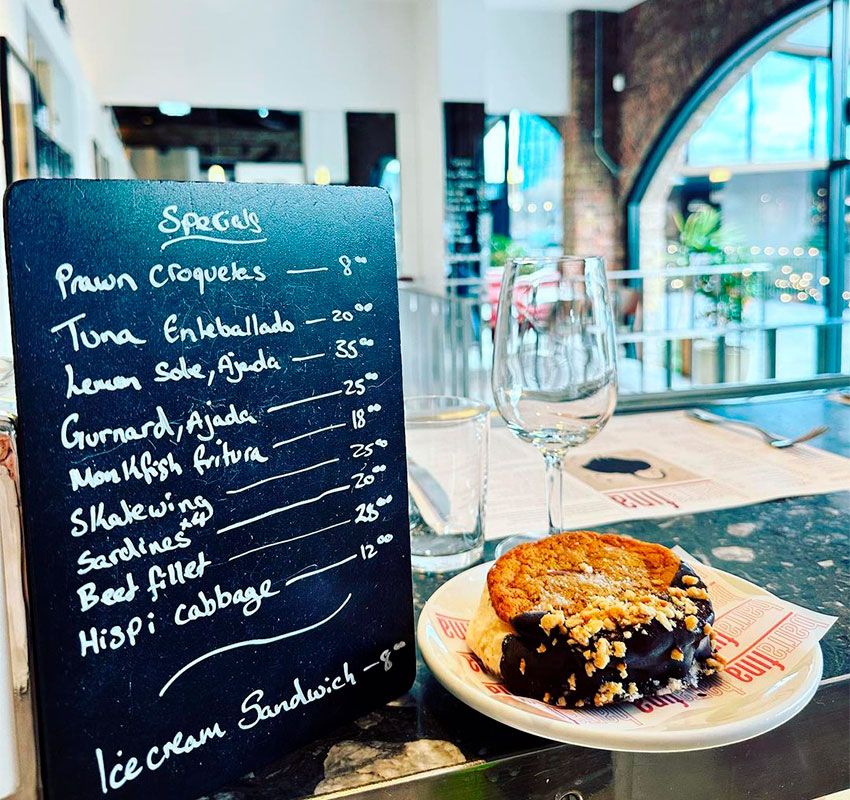 Specials
Prawn Croquetas — 8⁰⁰
Tuna Enteballado — 20⁰⁰
Lemon Sole, Ajada — 35⁰⁰
Gurnard, Ajada — 25⁰⁰
Monkfish fritura — 18⁰⁰
Skatewing — 25⁰⁰
Sardines x4 — 20⁰⁰
Beef fillet — 28⁰⁰
Hispi cabbage — 12⁰⁰
Ice cream Sandwich — 8⁰⁰
fina
barrafina